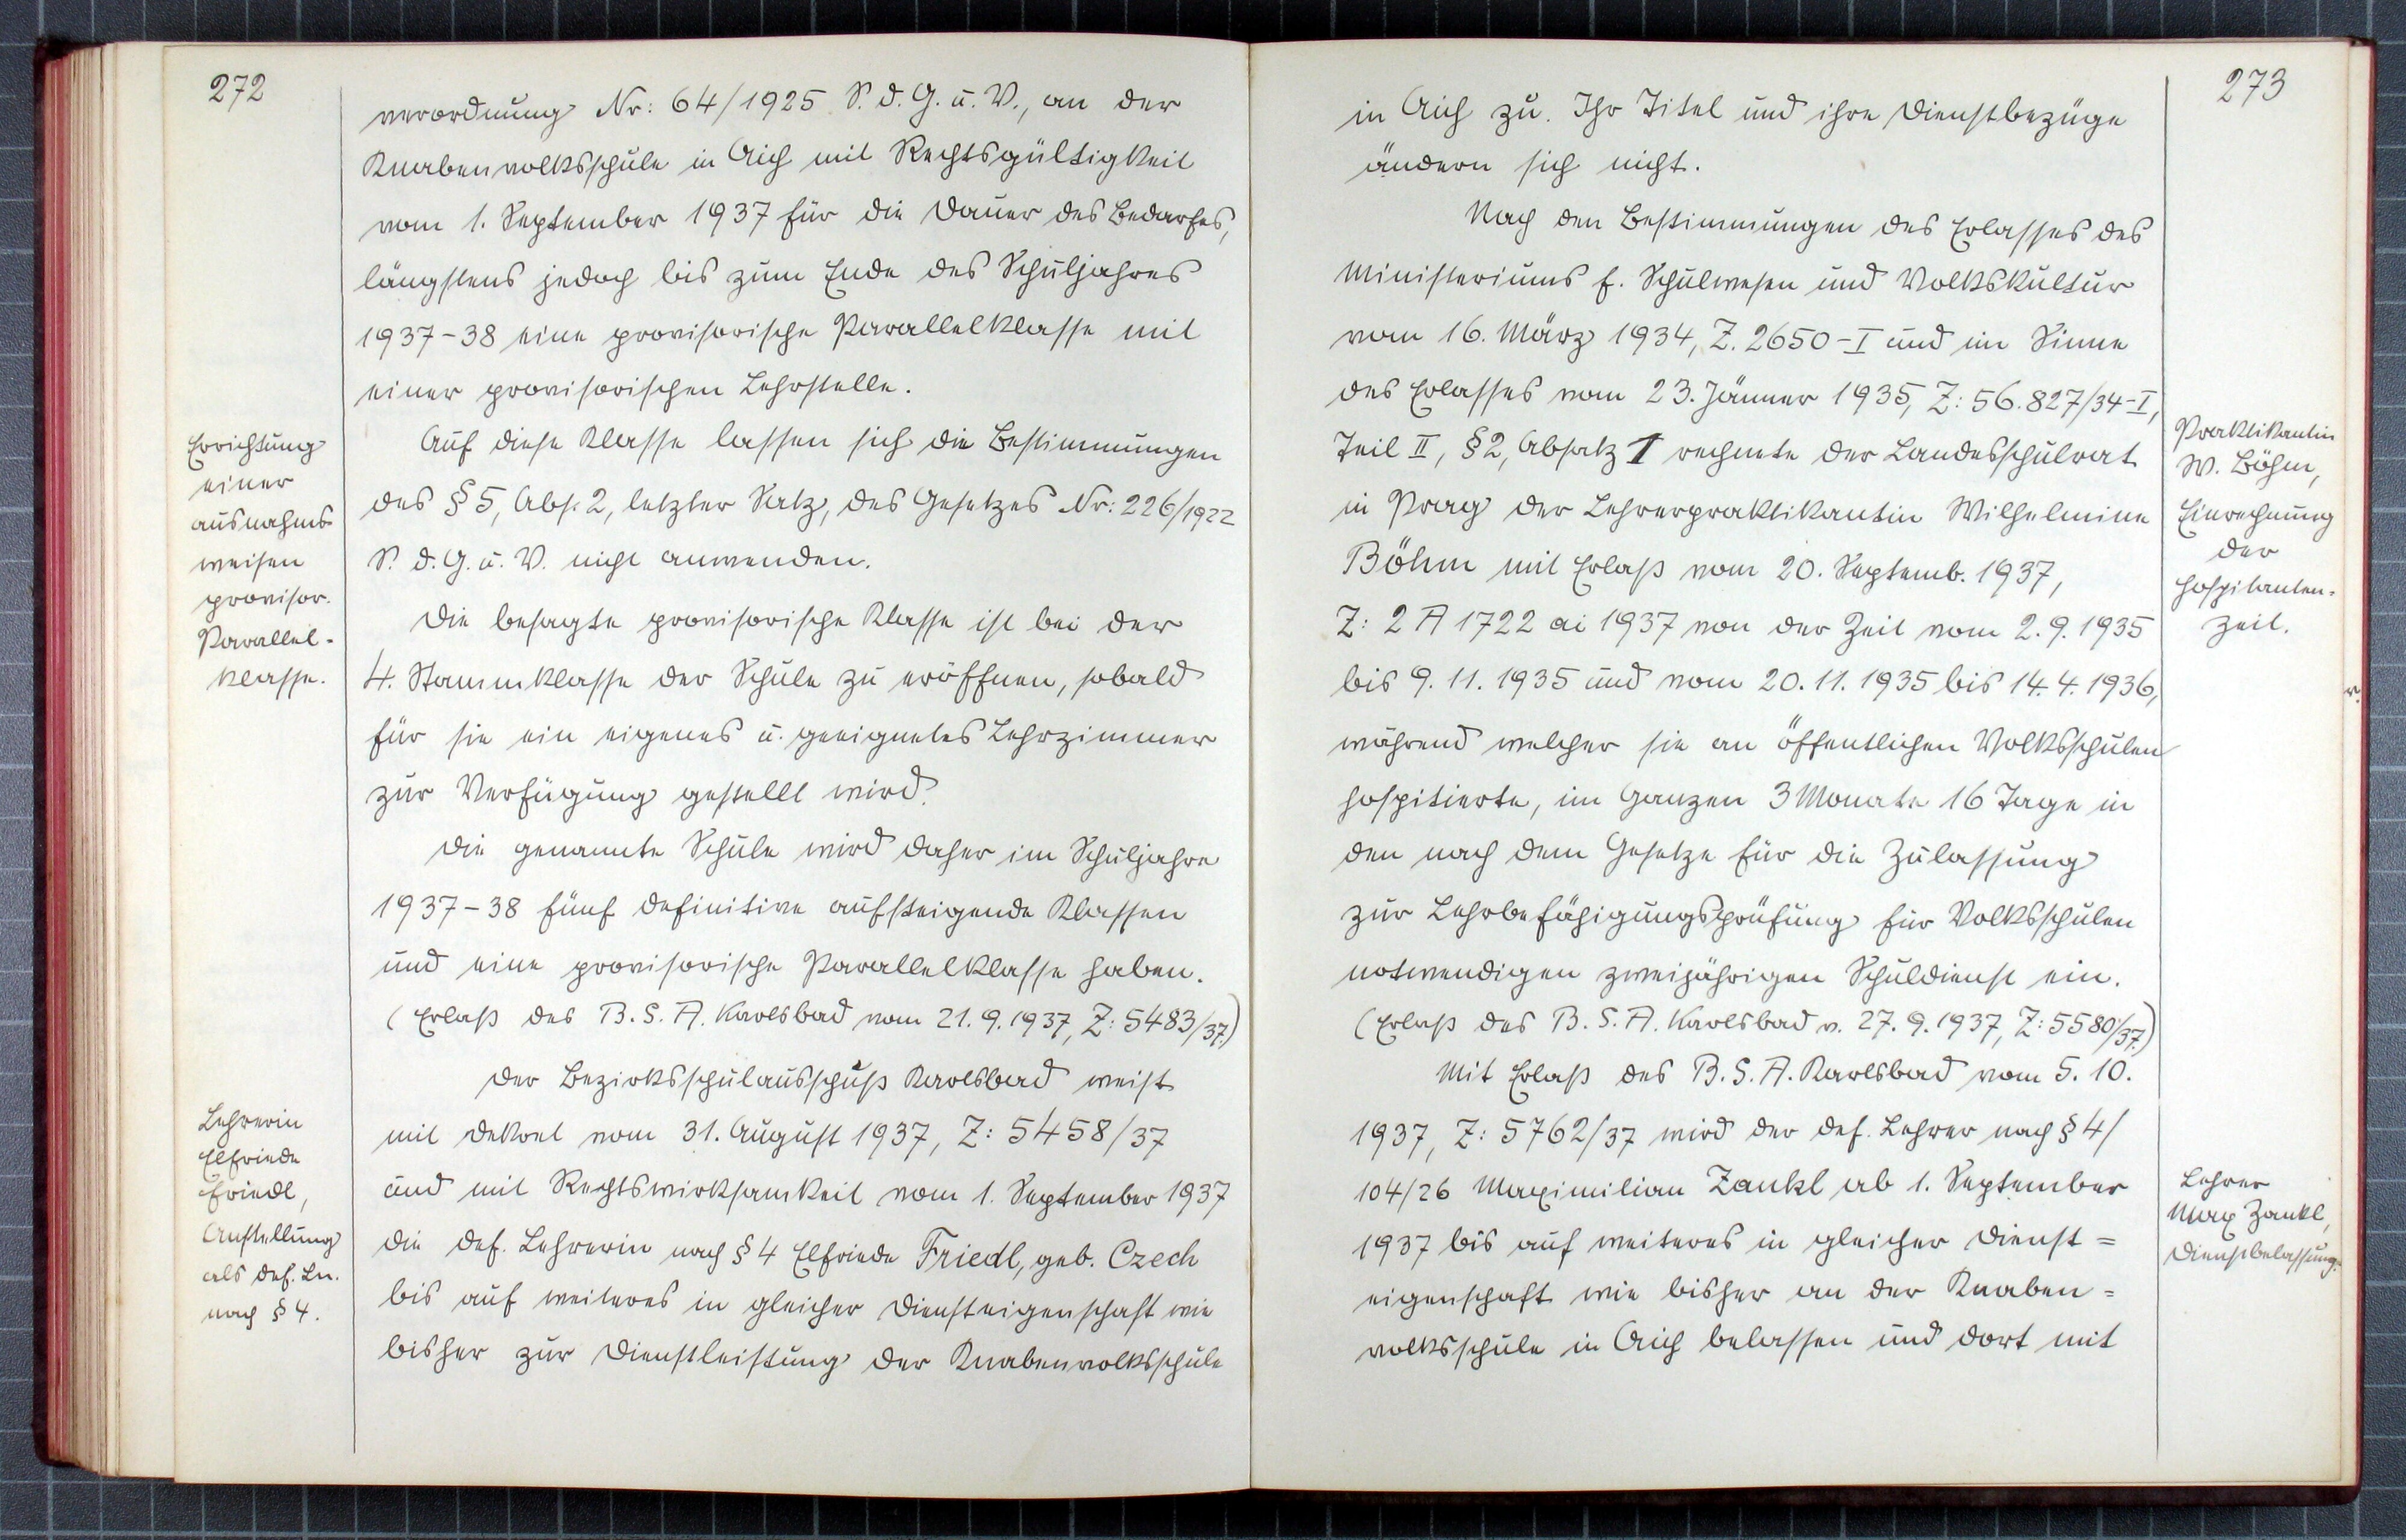 272
verordnung Nr: 64/1925 S. d. G. u. V., an der
Knabenvolksschule in Aich mit Rechtsgültigkeit
vom 1. September 1937 für die Dauer des Bedarfes,
längstens jedoch bis zum Ende des Schuljahres
1937-38 eine provisorische Parallelklasse mit
einer provisorischen Lehrstelle.
Errichtung
einer
ausnahms-
weisen
provisor.
Parallel-
klasse.
Auf diese Klasse lassen sich die Bestimmungen
des § 5, Abs. 2, letzter Satz, des Gesetzes Nr: 226/1922
S. d. G. u. V. nicht anwenden.
Die besagte provisorische Klasse ist bei der
4. Stammklasse der Schule zu eröffnen, sobald
für sie ein eigenes u. geeignetes Lehrzimmer
zur Verfügung gestellt wird.
Die genannte Schule wird daher im Schuljahre
1937-38 fünf definitive aufsteigende Klassen
und eine provisorische Parallelklasse haben.
(Erlaß des B. S. A. Karlsbad vom 21. 9. 1937, Z: 5483/37.)
Der Bezirksschulausschuß Karlsbad weist
Lehrerin
Elfriede
Friedl,
Anstellung
als def. Ln.
nach § 4.
mit Dekret vom 31. August 1937, Z: 5458/37
und mit Rechtswirksamkeit vom 1. September 1937
die def. Lehrerin nach § 4 Elfriede Friedl, geb. Czech
bis auf weiteres in gleicher Diensteigenschaft wie
bisher zur Dienstleistung der Knabenvolksschule
273
in Aich zu. Ihr Titel und ihre Dienstbezüge
ändern sich nicht.
Nach den Bestimmungen des Erlasses des
Ministeriums f. Schulwesen und Volkskultur
vom 16. März 1934, Z. 2650-I und im Sinne
des Erlasses vom 23. Jänner 1935, Z: 56.827/34-I,
Teil II, § 2, Absatz 1 rechnete der Landesschulrat
in Prag der Lehrerpraktikantin Wilhelmine
Böhm mit Erlaß vom 20. Septemb. 1937,
Z: 2 A 1722 ai 1937 von der Zeit vom 2. 9. 1935
bis 9. 11. 1935 und vom 20. 11. 1935 bis 14. 4. 1936,
während welcher sie an öffentlichen Volksschulen
hospitierte, im Ganzen 3 Monate 16 Tage in
den nach dem Gesetze für die Zulassung
zur Lehrbefähigungsprüfung für Volksschulen
notwendigen zweijährigen Schuldienst ein.
(Erlaß des B. S. A. Karlsbad v. 27. 9. 1937, Z: 5580/37.)
Praktikantin
W. Böhm,
Einrechnung
der
Hospitanten-
zeit.
Mit Erlaß des B. S. A. Karlsbad vom 5. 10.
1937, Z: 5762/37 wird der def. Lehrer nach § 4/
104/26 Maximilian Zankl ab 1. September
1937 bis auf weiteres in gleicher Dienst=
eigenschaft wie bisher an der Knaben=
volksschule in Aich belassen und dort mit
Lehrer
Max Zankl,
Dienstbelassung.